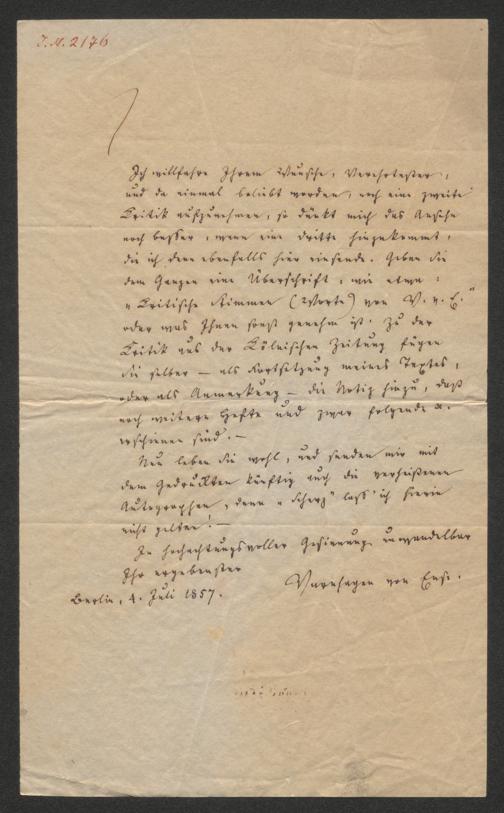 I.N. 2176
Ich willfahre Ihrem Wunsche, Verehrtester,
und da einmal beliebt worden, noch eine zweite
Kritik aufzunehmen, so dünkt mich das Ansehn
noch besser, wenn eine dritte hinzukommt,
die ich denn ebenfalls hier einsende. Geben Sie
dem Ganzen eine Überschrift, wie etwa:
„Kritische Stimmen (Worte) von V. v. E."
oder was Ihnen sonst genehm ist. Zu der
Kritik aus der Kölnischen Zeitung fügen
Sie selber – als Fortsetzung meines Textes,
oder als Anmerkung – die Notiz hinzu, daß
noch weitere Hefte und zwar folgende a.
erschienen sind. –
Nun leben Sie wohl, und senden mir mit
dem Gedruckten künftig auch die verheißenen
Autographen, denn „Scherz" lass' ich hierin
nicht gelten! –
In hochachtungsvoller Gesinnung unwandelbar
Ihr ergebenster
Varnhagen von Ense.
Berlin, 4. Juli 1857.